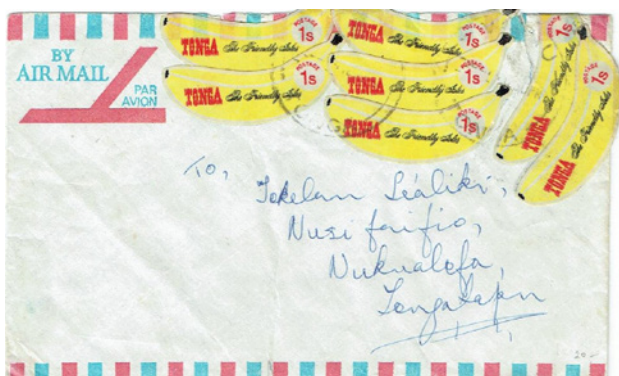 BY
AIR MAIL
PAR
AVION
POSTAGE
1s
TONGA The Friendly Isles
POSTAGE
1s
TONGA The Friendly Isles
POSTAGE
1s
TONGA The Friendly Isles
POSTAGE
1s
TONGA The Friendly Isles
POSTAGE
1s
TONGA The Friendly Isles
POSTAGE
1s
TONGA The Friendly Isles
POSTAGE
1s
TONGA The Friendly Isles
To,
Nusi faifio,
Nukualofa,
Tongatapu